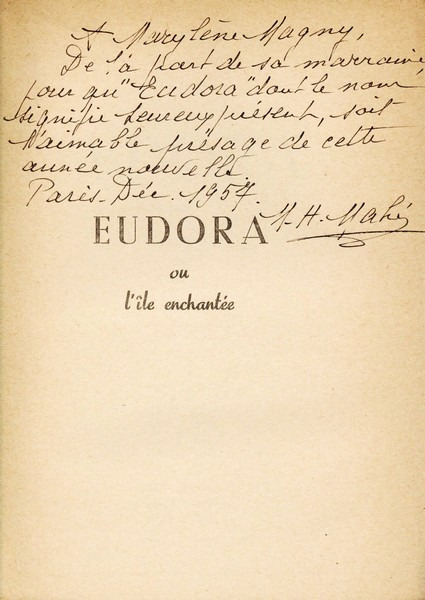 A Marylène Magny,
De la part de sa marraine,
pour qu'"Eudora" dont le nom
signifie heureux présent, soit
l'aimable présage de cette
année nouvelle.
Paris. Déc. 1957.
M. H. Mahé
EUDORA
ou
l'île enchantée